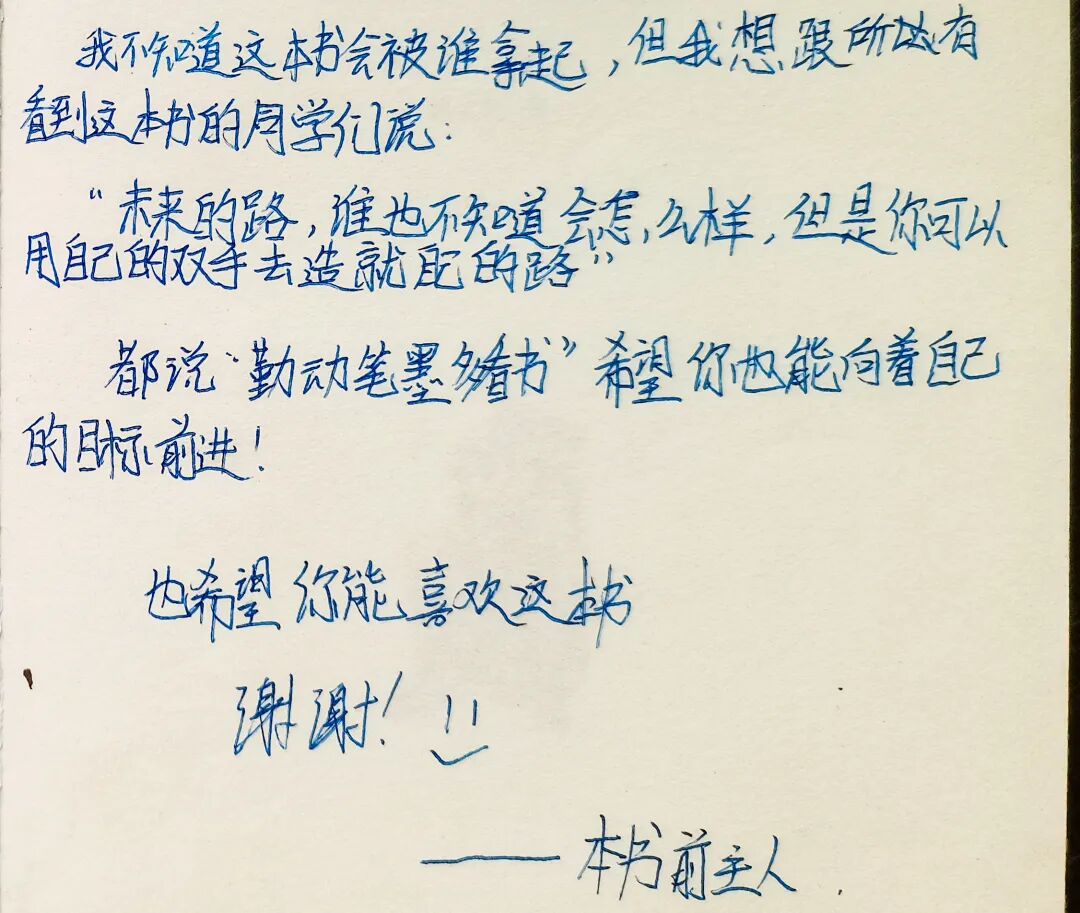 我不知道这本书会被谁拿起,但我想跟所以有
看到这本书的同学们说:
“未来的路,谁也不知道会怎么样,但是你可以
用自己的双手去造就自己的路”
都说“勤动笔墨多看书”希望你也能向着自己
的目标前进!
也希望你能喜欢这本书
谢谢!
——本书前主人.